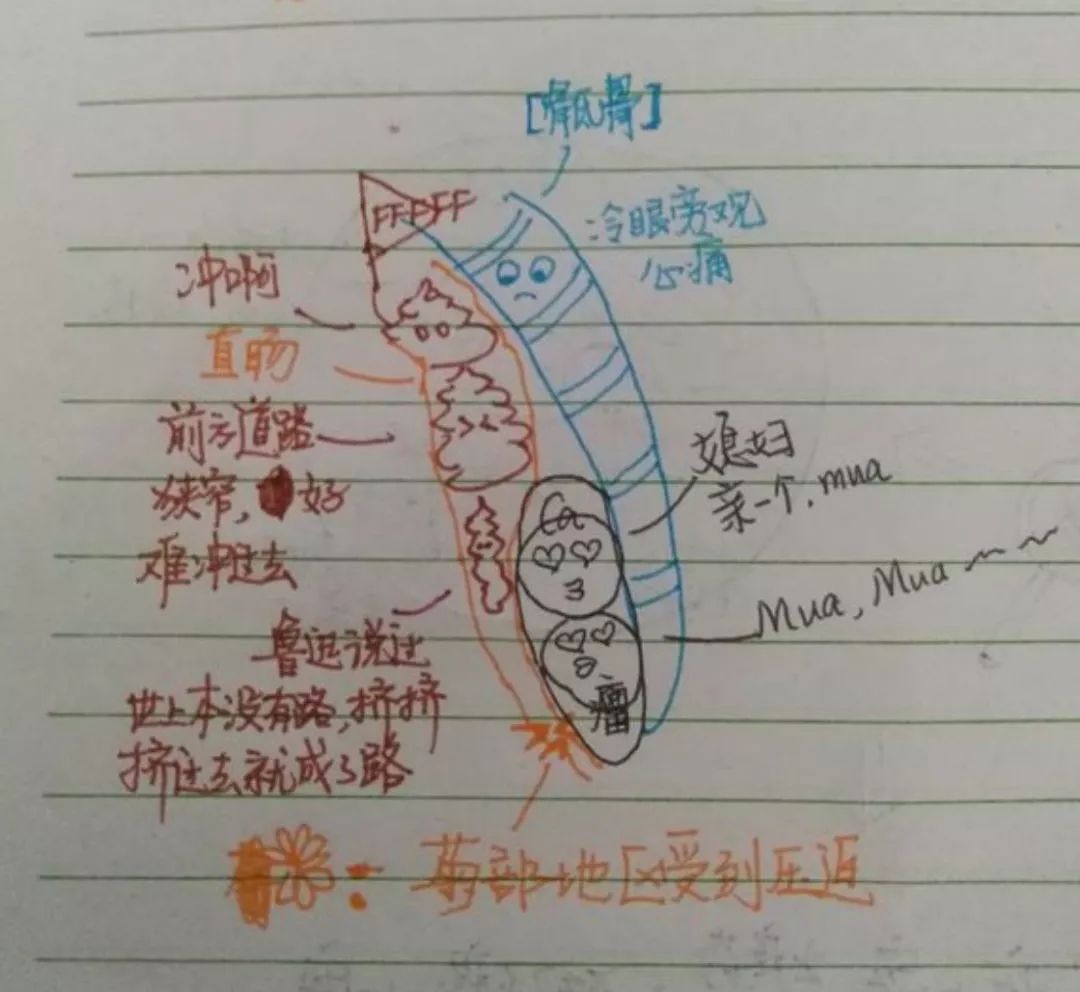 [骶骨]
FFFFF
冷眼旁观
心痛
冲啊
直肠
前方道路
狭窄，好
难冲过去
媳妇
亲一个，mua
Mua，Mua～～
鲁迅说过
世上本没有路，挤挤
挤过去就成了路
瘤
：菊部地区受到压迫